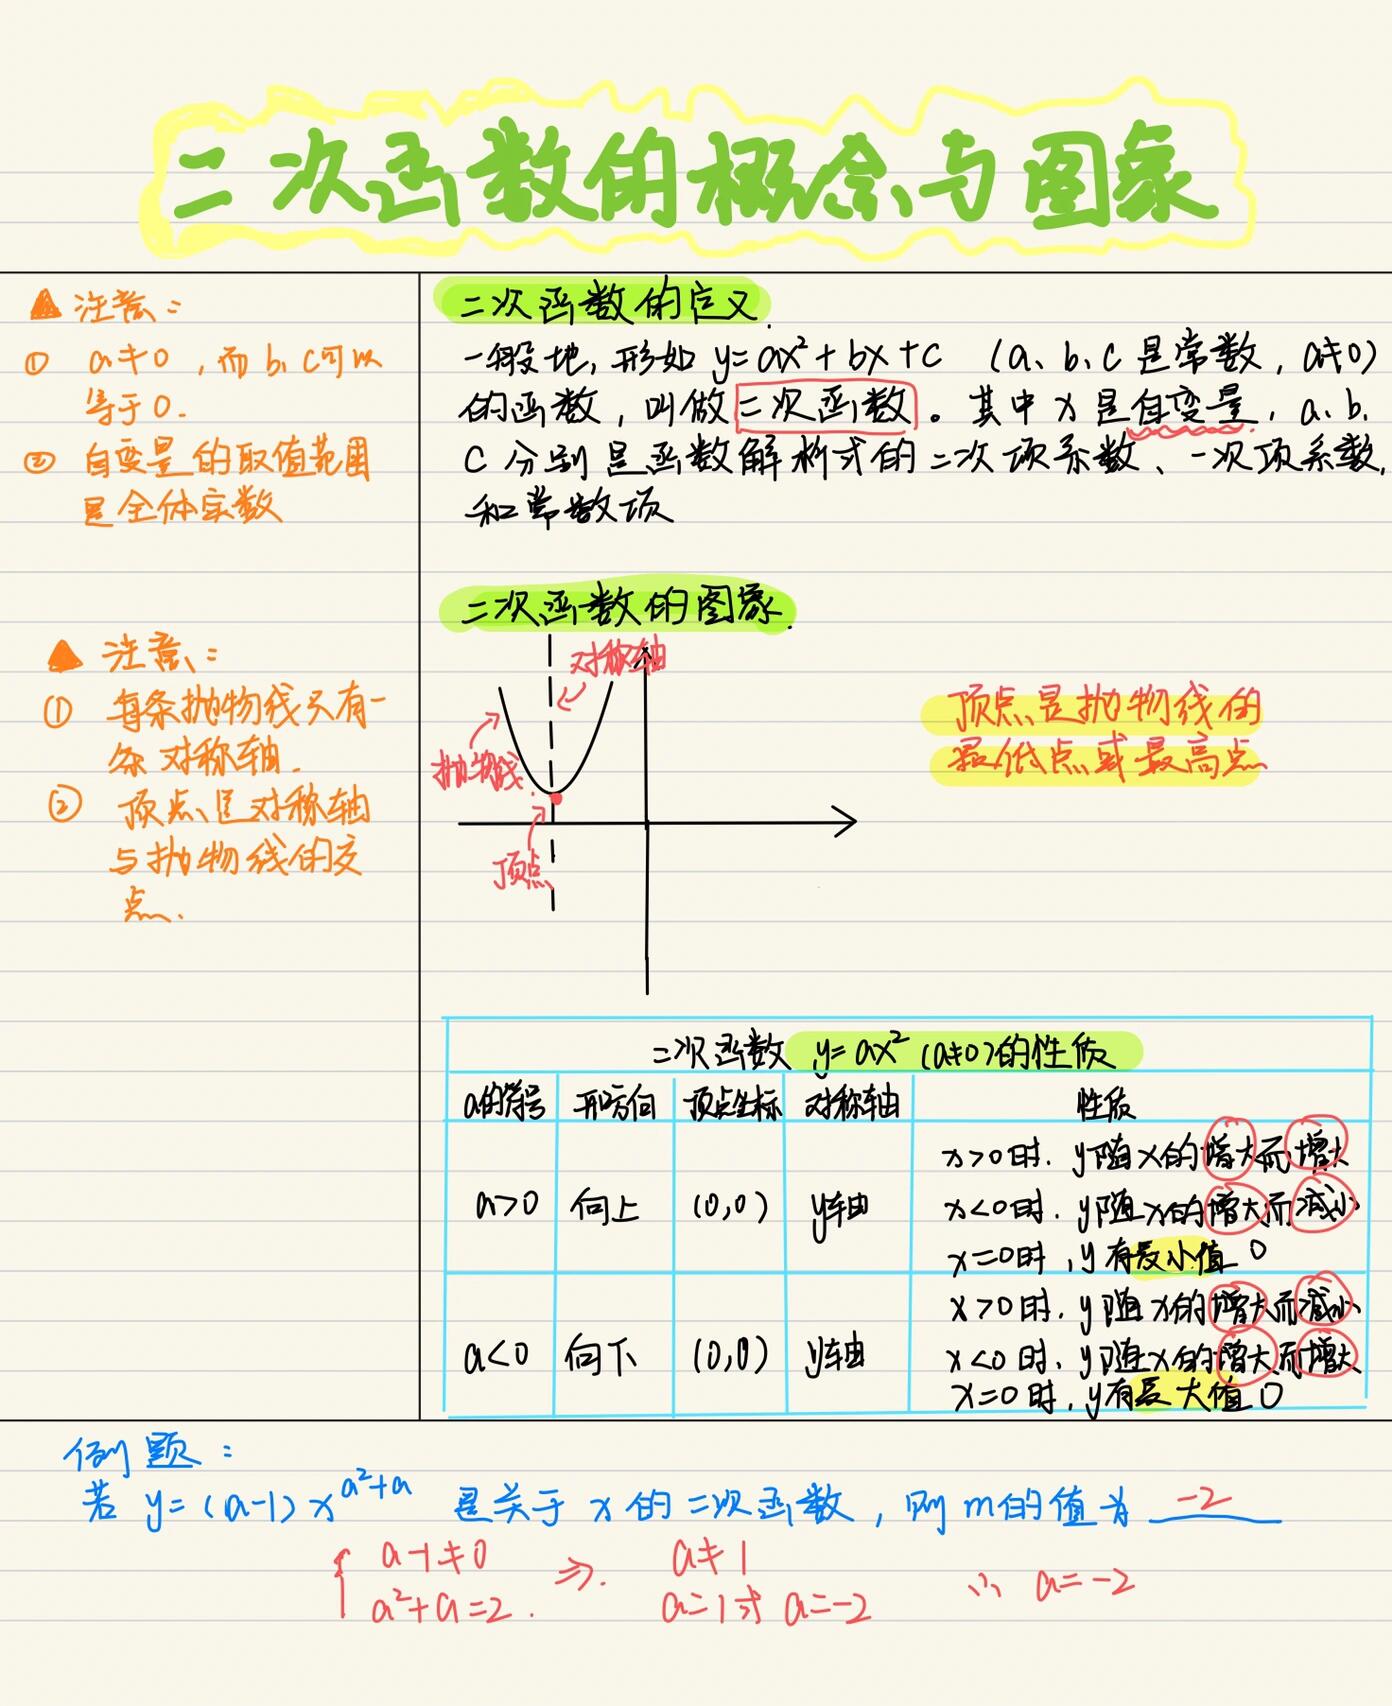 二次函数的概念与图象
▲ 注意:
① a≠0,而b、c可以
等于0.
② 自变量的取值范围
是全体实数
二次函数的定义.
一般地,形如 y=ax²+bx+c (a、b、c是常数,a≠0)
的函数,叫做二次函数。其中x是自变量,a、b、
c分别是函数解析式的二次项系数、一次项系数,
和常数项
▲ 注意:
① 每条抛物线只有一
条对称轴.
② 顶点是对称轴
与抛物线的交
点.
二次函数的图象.
对称轴
抛物线
顶点
顶点是抛物线的
最低点或最高点
二次函数 y=ax² (a≠0)的性质
a的符号 开方向 顶点坐标 对称轴 性质
a>0 向上 (0,0) y轴
x>0时.y随x的增大而增大
x<0时.y随x的增大而减小
x=0时,y有最小值 0
a<0 向下 (0,0) y轴
x>0时.y随x的增大而减小
x<0时.y随x的增大而增大
x=0时,y有最大值 0
例题:
若 y=(a-1)x^{a²+a} 是关于x的二次函数,则m的值为 -2
{ a-1≠0 ⇒. a≠1
a²+a=2. a=1或 a=-2 ∴ a=-2